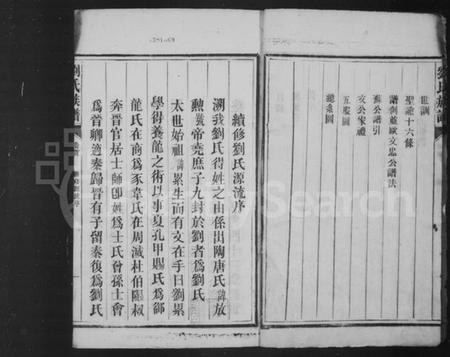 劉氏族譜
世訓
聖諭十六條
譜例並歐文忠公譜法
蘇公譜引
文公家禮
五服圖
總系圖
續修劉氏源流序
溯我劉氏得姓之由係出陶唐氏諱放
勲稱帝堯庶子九封於劉者為劉氏
太世始祖諱累生而有文在手曰劉累
學得養龍之術以事夏孔甲賜氏為御
龍氏在商為豕韋氏在周滅杜伯隰叔
奔晉官居士師卽姓為士氏曾孫士會
為晉卿適秦歸晉有子留秦復為劉氏
劉氏族譜